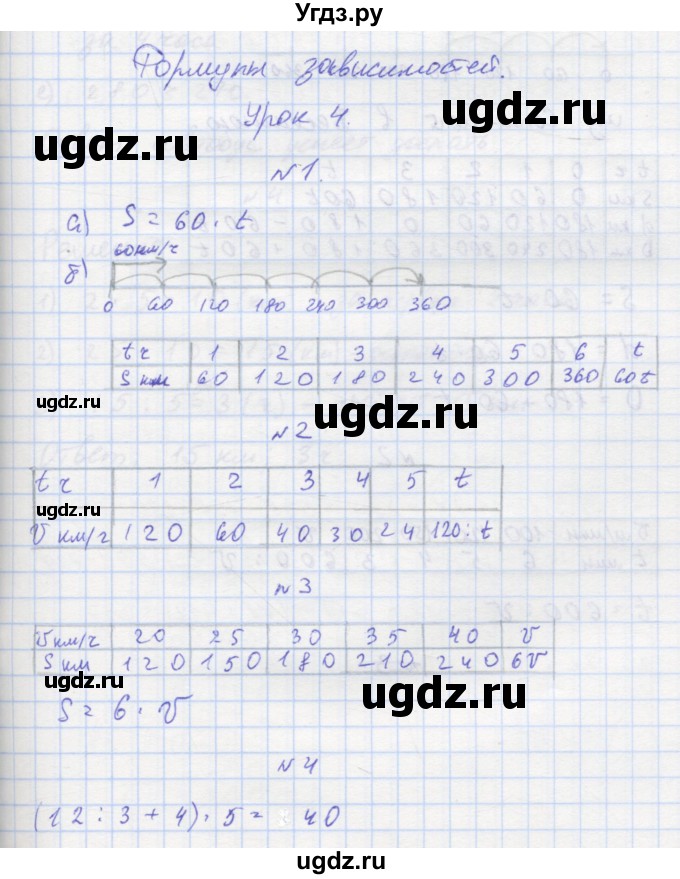 Угдз.ру
Формулы зависимостей.
Урок 4.
ugdz.ru ugdz.ru ugdz.ru
№1.
а) S = 60 · t
60км/ч
б)
0 60 120 180 240 300 360
t ч 1 2 3 4 5 6 t
S км 60 120 180 240 300 360 60t
ugdz.ru ugdz.ru ugdz.ru
№2
t ч 1 2 3 4 5 t
V км/ч 120 60 40 30 24 120:t
№3
Vкм/ч 20 25 30 35 40 V
S км 120 150 180 210 240 6V
ugdz.ru ugdz.ru ugdz.ru
S = 6 · V
№4
(12 : 3 + 4) · 5 = 40
ugdz.ru